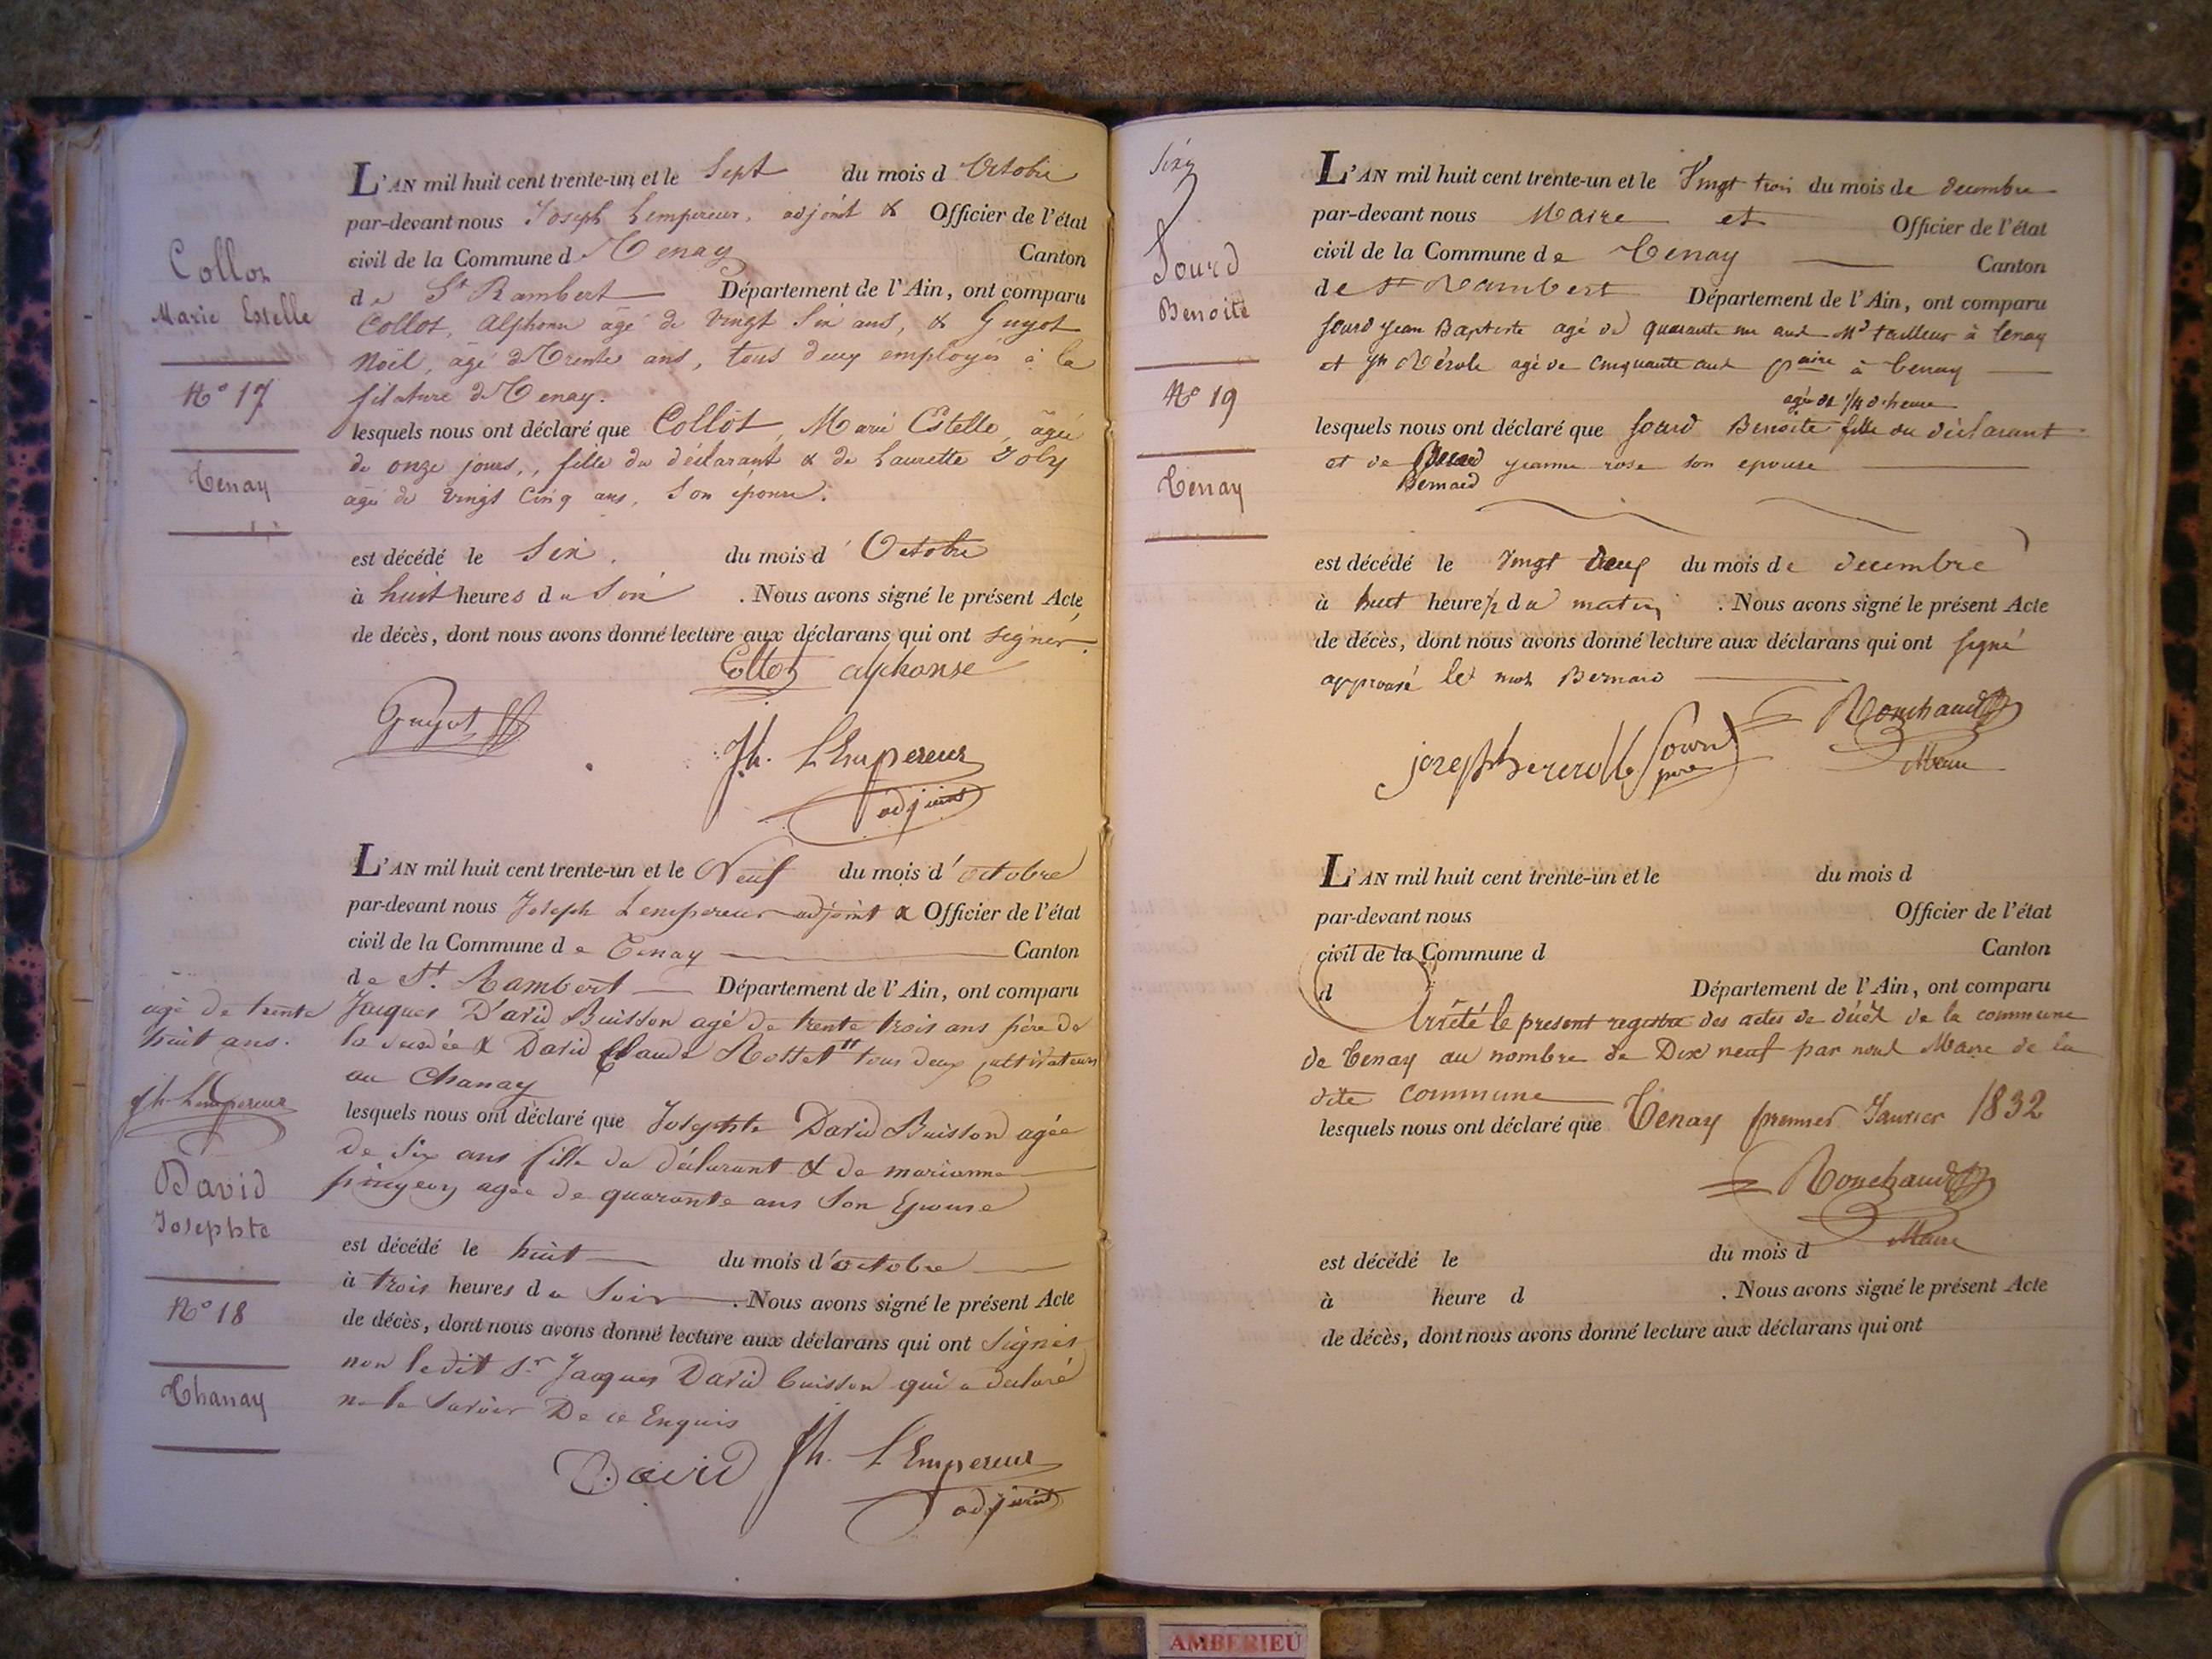 Collot
Marie Estelle
N° 17
Tenay
L'AN mil huit cent trente-un et le Sept du mois d'Octobre
par-devant nous Joseph Lempereur, adjoint & Officier de l'état
civil de la Commune d Tenay Canton
de St Rambert Département de l'Ain, ont comparu
Collot, Alphonse âgé de vingt Six ans, & Guyot
Noël, âgé de Trente ans, tous deux employés à la
filature de Tenay.
lesquels nous ont déclaré que Collot, Marie Estelle, âgée
de onze jours, fille du déclarant & de Laurette Joly
âgée de vingt Cinq ans, Son épouse.
est décédé le Six. du mois d'Octobre
à huit heures du Soir . Nous avons signé le présent Acte
de décès, dont nous avons donné lecture aux déclarans qui ont signer.
Collot alphonse
Guyot
Jh. L'Empereur
adjoint
L'AN mil huit cent trente-un et le Neuf du mois d'octobre
par-devant nous Joseph Lempereur adjoint & Officier de l'état
civil de la Commune de Tenay Canton
de St. Rambert Département de l'Ain, ont comparu
agé de trente
huit ans.
Jh. Lempereur
David
Josephte
N° 18
Chanay
Jacques David Buisson agé de trente trois ans père de
la & David Claude Rosset tous deux cultivateurs
au Chanay
lesquels nous ont déclaré que Josephte David Buisson agée
de Six ans fille du déclarant & de marianne
pingeon agée de quarante ans Son Epouse
est décédé le huit du mois d'octobre
à trois heures du Soir . Nous avons signé le présent Acte
de décès, dont nous avons donné lecture aux déclarans qui ont Signés
non ledit Sr. Jacques David buisson qui a déclaré
ne le Savoir De ce Enquis
David Jh. L'Empereur
adjoint
Jourd
Benoite
N° 19
Tenay
L'AN mil huit cent trente-un et le Vingt trois du mois de decembre
par-devant nous Maire et Officier de l'état
civil de la Commune de Tenay Canton
de St Rambert Département de l'Ain, ont comparu
Jourd Jean Baptiste agé de quarante un ans Md tailleur à Tenay
et Jh Nérole agé de cinquante ans à Tenay
agée de 1/4 d'heure
lesquels nous ont déclaré que Jourd Benoite fille du déclarant
et de jeanne rose son epouse
Bernard
est décédé le Vingt deux du mois de decembre
à huit heure 1/2 du matin . Nous avons signé le présent Acte
de décès, dont nous avons donné lecture aux déclarans qui ont signé
approuvé le mot Bernard
Jourd père
Ronchaud
Maire
L'AN mil huit cent trente-un et le du mois d
par-devant nous Officier de l'état
civil de la Commune d Canton
d Département de l'Ain, ont comparu
Arrêté le present registre des actes de décès de la commune
de Tenay au nombre de Dix neuf par nous Maire de la
dite commune
lesquels nous ont déclaré que Tenay premier Janvier 1832
Ronchaud
Maire
est décédé le du mois d
à heure d . Nous avons signé le présent Acte
de décès, dont nous avons donné lecture aux déclarans qui ont
AMBERIEU